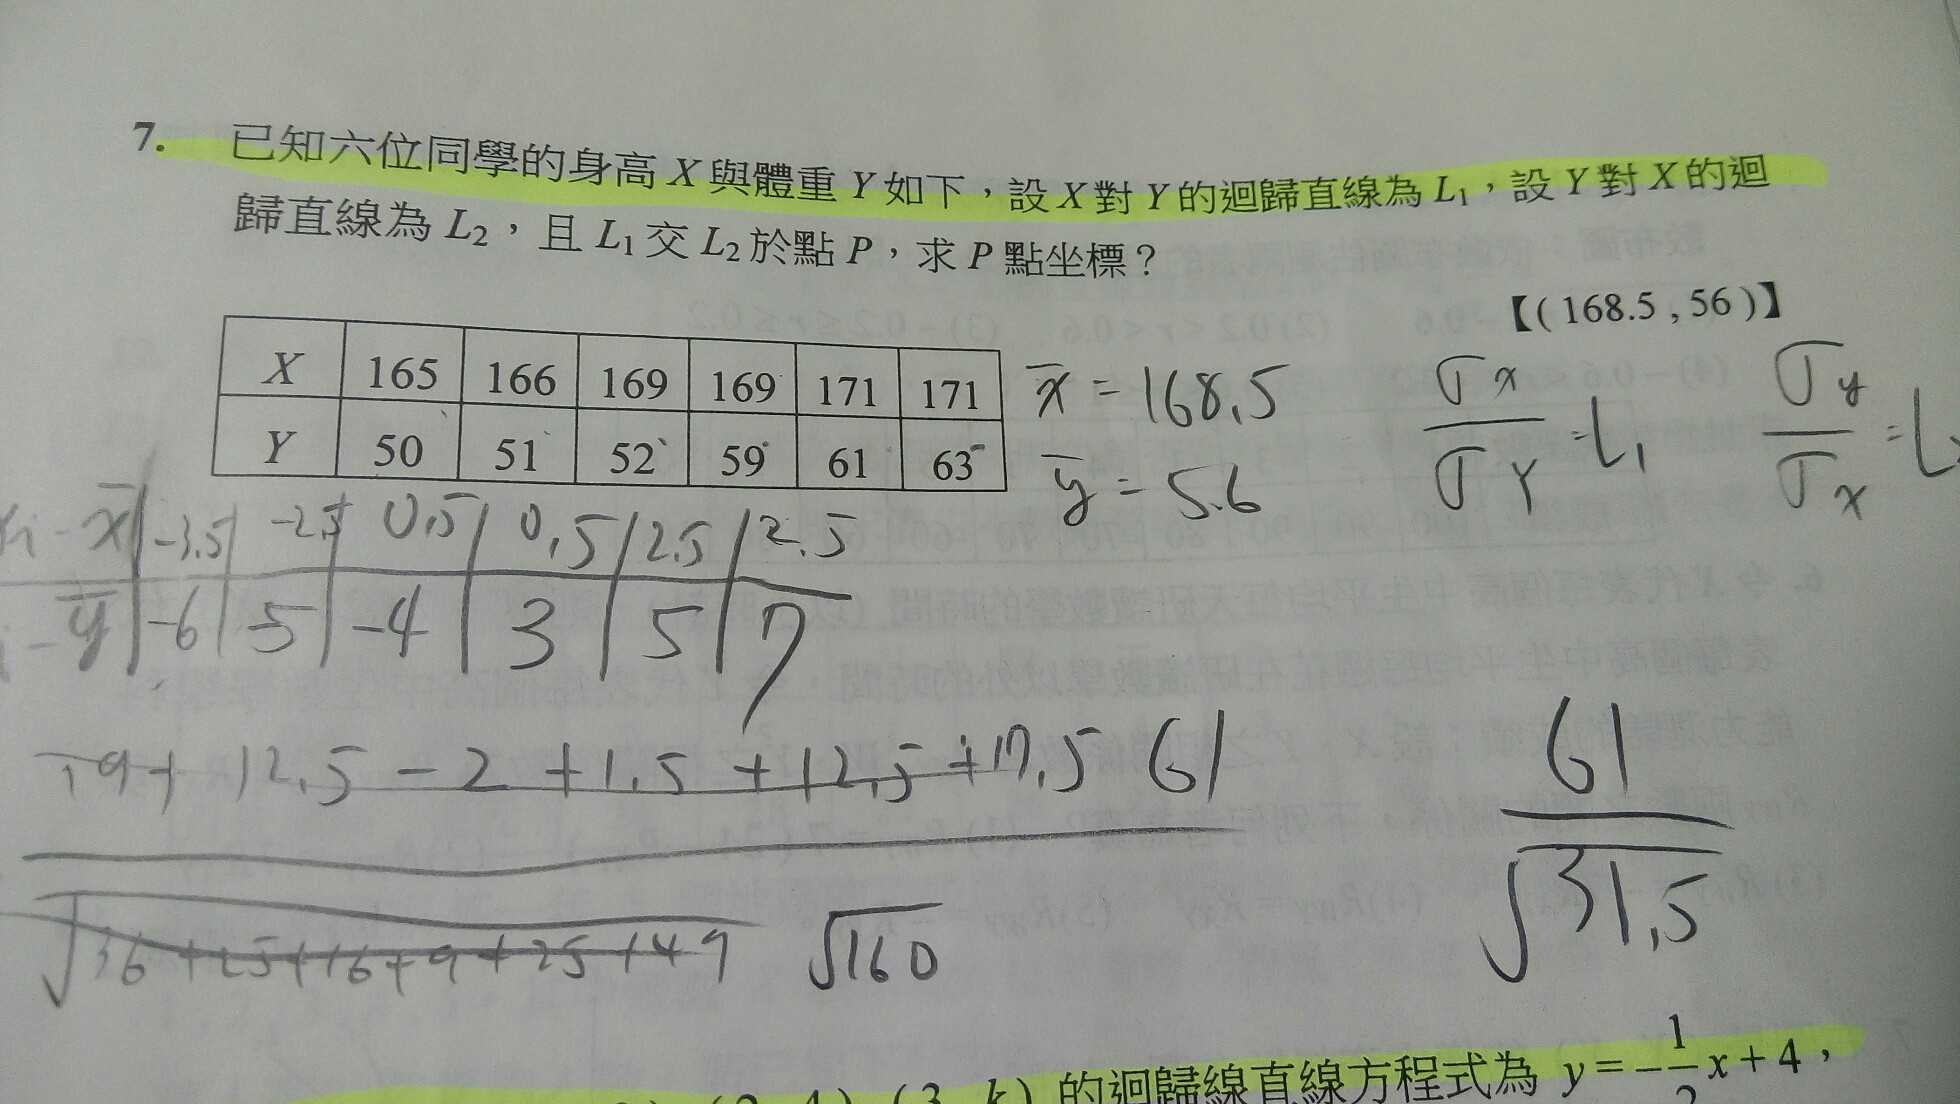 7. 已知六位同學的身高 X 與體重 Y 如下，設 X 對 Y 的迴歸直線為 L₁，設 Y 對 X 的迴
歸直線為 L₂，且 L₁ 交 L₂ 於點 P，求 P 點坐標？
【( 168.5 , 56 )】
X 165 166 169 169 171 171
Y 50 51 52 59 61 63
x̄ = 168.5
ȳ = 5.6
σx/σY = L₁
σy/σx = L
- x̄ -3.5 -2.5 0.5 0.5 2.5 2.5
- ȳ -6 -5 -4 3 5 7
+ 12.5 - 2 + 1.5 + 12.5 + 17.5 61
√36 + 25 + 16 + 9 + 25 + 49 √160
61/√31.5
的迴歸線直線方程式為 y = -1/2 x + 4，